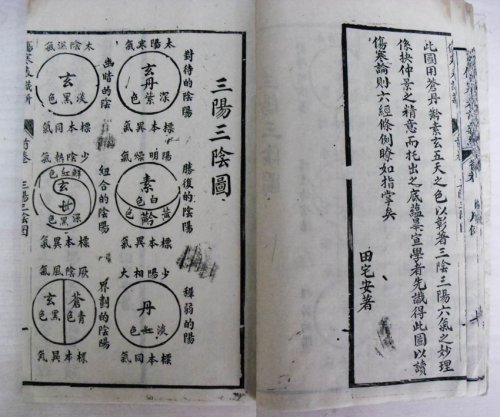 此圖用蒼丹黅素玄五天之色以彰著三陰三陽六氣之妙理
像抉仲景之精意而托出之底蘊畢宣學者先識得此圖以讀
傷寒論則六經條例瞭如指掌矣
田宅安著
三陽三陰圖
對待的陰陽
太陽寒氣
玄丹
深紫色
標本異氣
勝復的陰陽
陽明燥氣
素
白色
黅
黃色
標本異氣
穉弱的陽
少陽相火
丹
淡紅色
標本同氣
幽暗的陰
太陰濕氣
玄
淡黑色
標本同氣
組合的陰陽
少陰熱氣
鮮紅色
玄
深黑色
標本異氣
界劃的陰陽
厥陰風氣
蒼
青色
玄
黑色
三陽三陰図